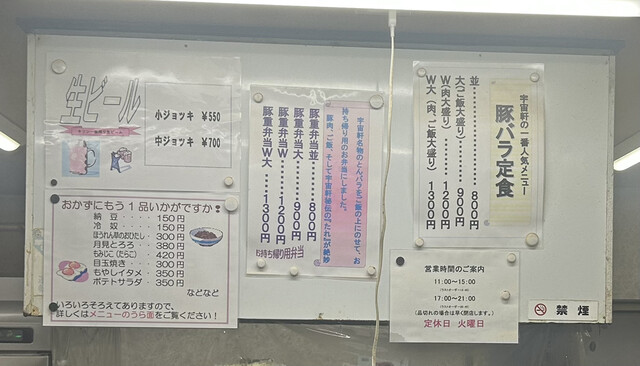 生ビール
小ジョッキ ¥550
中ジョッキ ¥700
おかずにもう1品いかがですか!
納豆・・・・・・・・・150円
冷奴・・・・・・・・・150円
ほうれん草のおひたし・・・300円
月見とろろ・・・・・・380円
もみじこ(たらこ)・・・420円
目玉焼き・・・・・・・300円
もやしイタメ・・・・・350円
ポテトサラダ・・・・・350円
などなど
いろいろそろえてありますので、
詳しくはメニューのうら面をご覧ください!
宇宙軒名物のとんバラをご飯の上にのせて、お
持ち帰り用のお弁当にしました。
豚肉、ご飯、そして宇宙軒秘伝の「たれ」が絶妙
豚重弁当並・・・・800円
豚重弁当大・・・・900円
豚重弁当W・・・・1200円
豚重弁当W大・・・1300円
お持ち帰り用弁当
宇宙軒の一番人気メニュー
豚バラ定食
並・・・・・・・・・・・・・・800円
大(ご飯大盛り)・・・・・・900円
W(肉大盛り)・・・・・・・1200円
W大(肉、ご飯大盛り)1300円
営業時間のご案内
11:00~15:00
17:00~21:00
(品切れの場合は早く閉店します。)
定休日 火曜日
禁煙